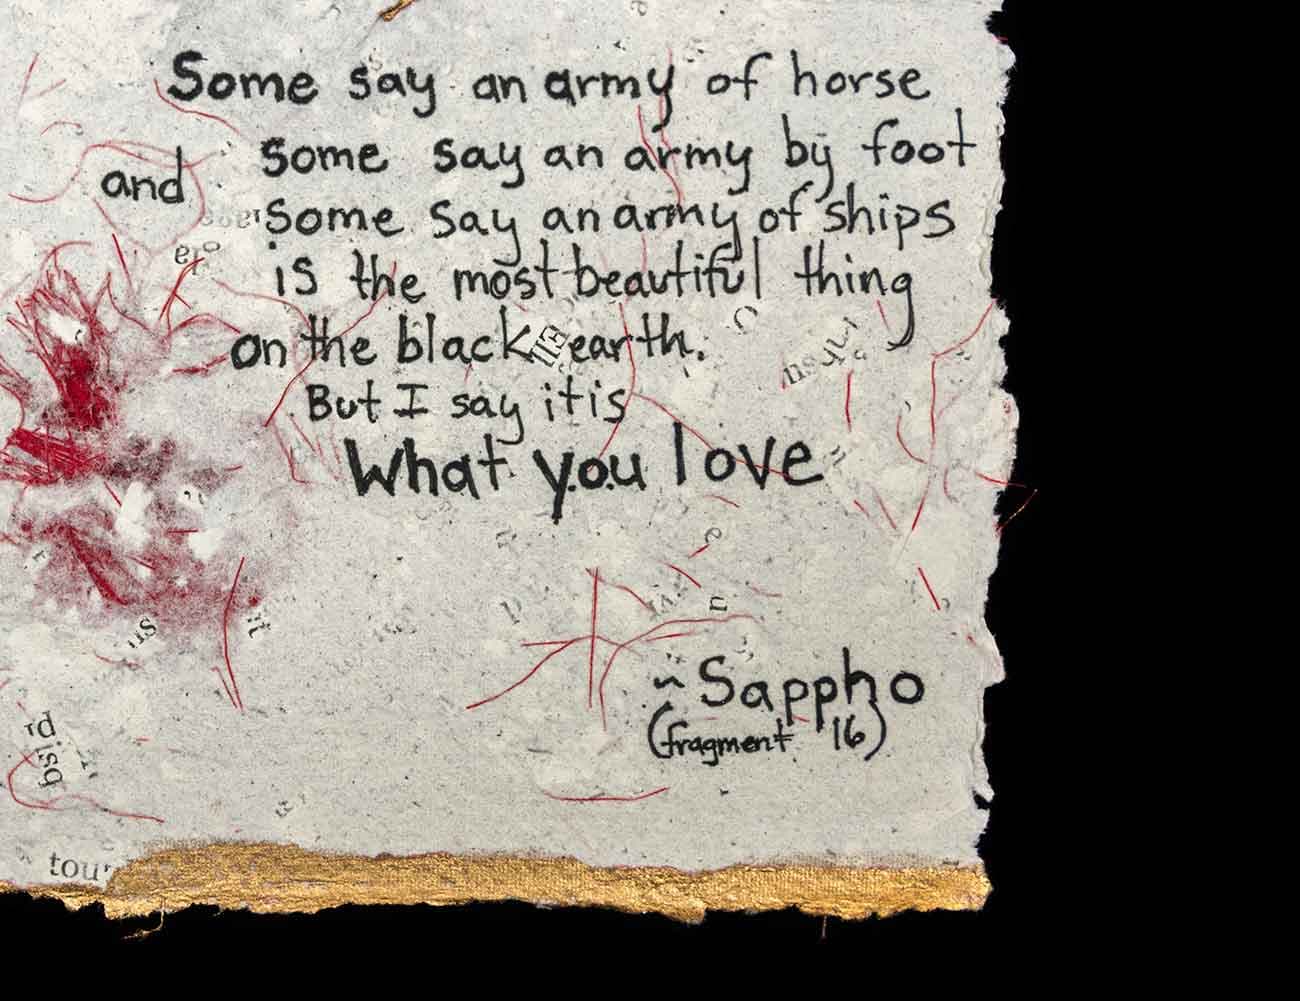 Some say an army of horse
and some say an army by foot
some say an army of ships
is the most beautiful thing
on the black earth.
But I say it is
What you love
~ Sappho
(fragment 16)
us
it
tour